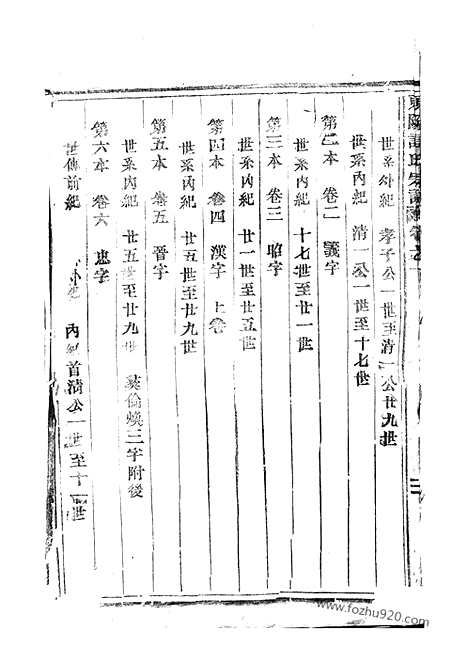 世系外紀 孝子公一世至清一公廿九世
世系內紀 清一公一世至十七世
第二本 卷二 義字
世系內紀 十七世至廿一世
第三本 卷三 昭字
世系內紀 廿一世至廿五世
第四本 卷四 漢字 上卷
世系內紀 廿五世至廿九世
第五本 卷五 晉字
世系內紀 廿五世至廿九世 葵倫煥三字附後
第六本 卷六 忠字
世傳前紀 內紀首清公一世至十一世
三
www.fozhu920.com